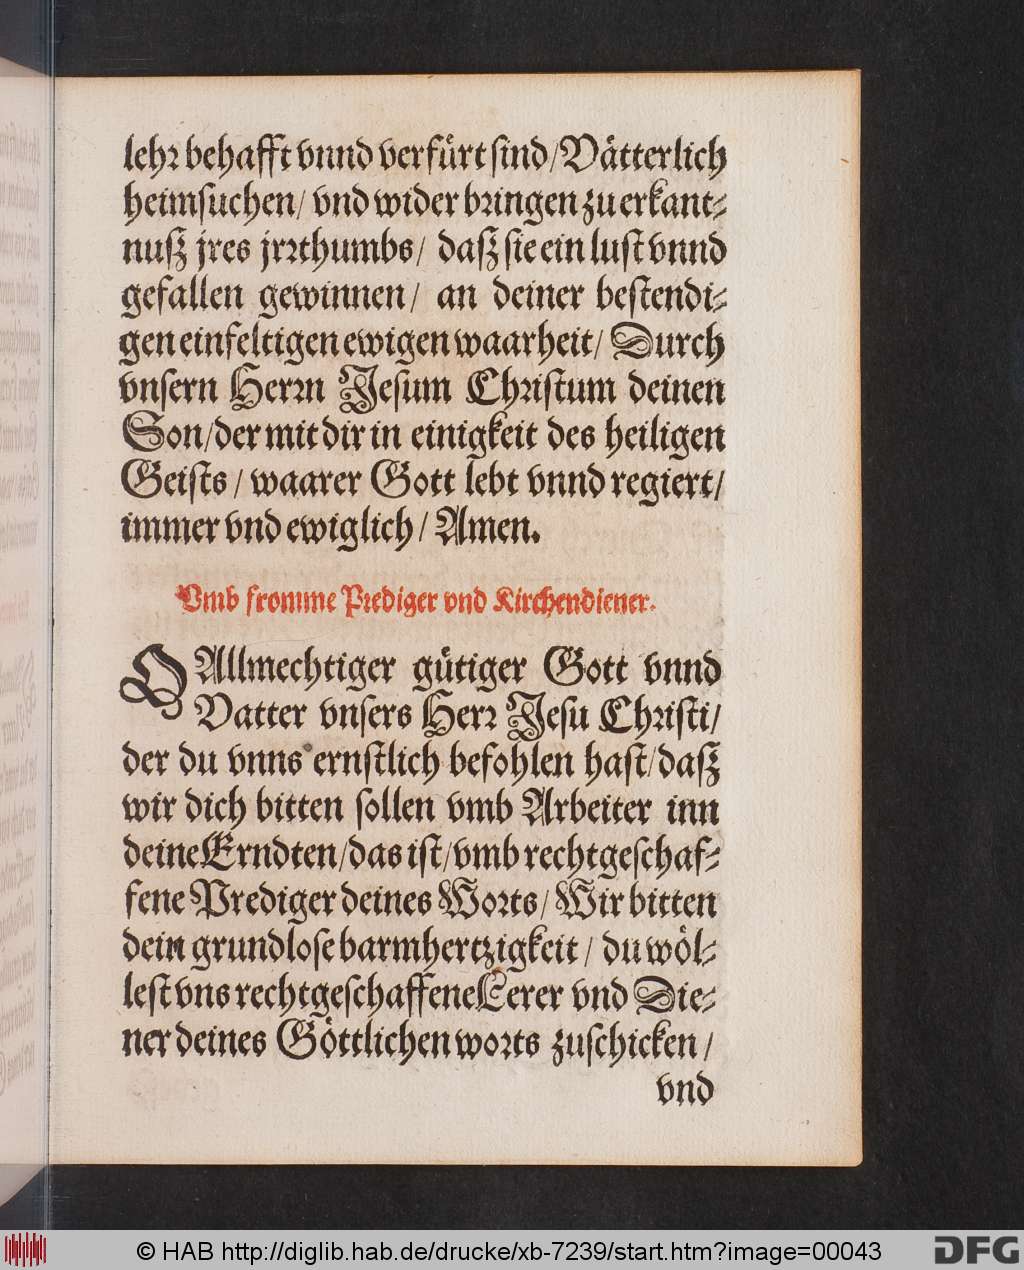 lehr behafft vnnd verfürt sind/Vätterlich
heimsuchen/ vnd wider bringen zu erkant-
nuß jres jrrthumbs/ daß sie ein lust vnnd
gefallen gewinnen/ an deiner bestendi-
gen einfeltigen ewigen waarheit/ Durch
vnsern Herrn Jesum Christum deinen
Son/der mit dir in einigkeit des heiligen
Geists/ waarer Gott lebt vnnd regiert/
immer vnd ewiglich/ Amen.
Vmb fromme Prediger vnd Kirchendiener.
O Allmechtiger gütiger Gott vnnd
Vatter vnsers Herr Jesu Christi/
der du vnns ernstlich befohlen hast/daß
wir dich bitten sollen vmb Arbeiter inn
deine Erndten/das ist/vmb rechtgeschaf-
fene Prediger deines Worts/Wir bitten
dein grundlose barmhertzigkeit/ du wöl-
lest vns rechtgeschaffene Lerer vnd Die-
ner deines Göttlichen worts zuschicken/
vnd
© HAB http://diglib.hab.de/drucke/xb-7239/start.htm?image=00043
DFG